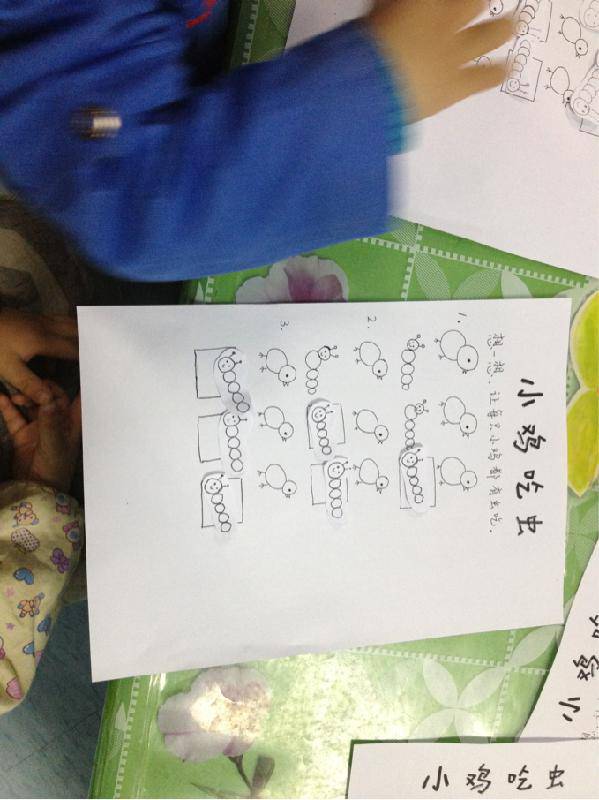 小鸡吃虫
想一想,让每只小鸡都有虫吃.
1.
2.
3.
小鸡
小鸡吃虫